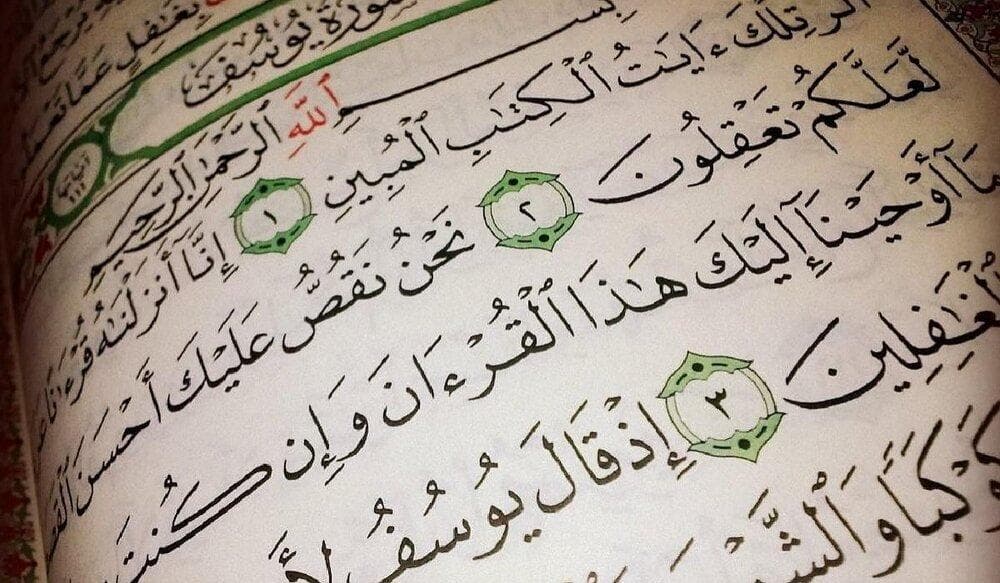 بِغَٰفِلٍ عَمَّا تَعْمَلُ
سُورَةُ يُوسُفَ
بِسْمِ ٱللَّهِ ٱلرَّحْمَٰنِ ٱلرَّحِيمِ
الٓر تِلْكَ ءَايَٰتُ ٱلْكِتَٰبِ ٱلْمُبِينِ ١ إِنَّآ أَنزَلْنَٰهُ قُرْءَٰنًا
لَّعَلَّكُمْ تَعْقِلُونَ ٢ نَحْنُ نَقُصُّ عَلَيْكَ أَحْسَنَ ٱلْقَصَ
مَآ أَوْحَيْنَآ إِلَيْكَ هَٰذَا ٱلْقُرْءَانَ وَإِن كُنتَ
ٱلْغَٰفِلِينَ ٣ إِذْ قَالَ يُوسُفُ لِأَ
كَوْكَبًا وَٱلشَّمْ